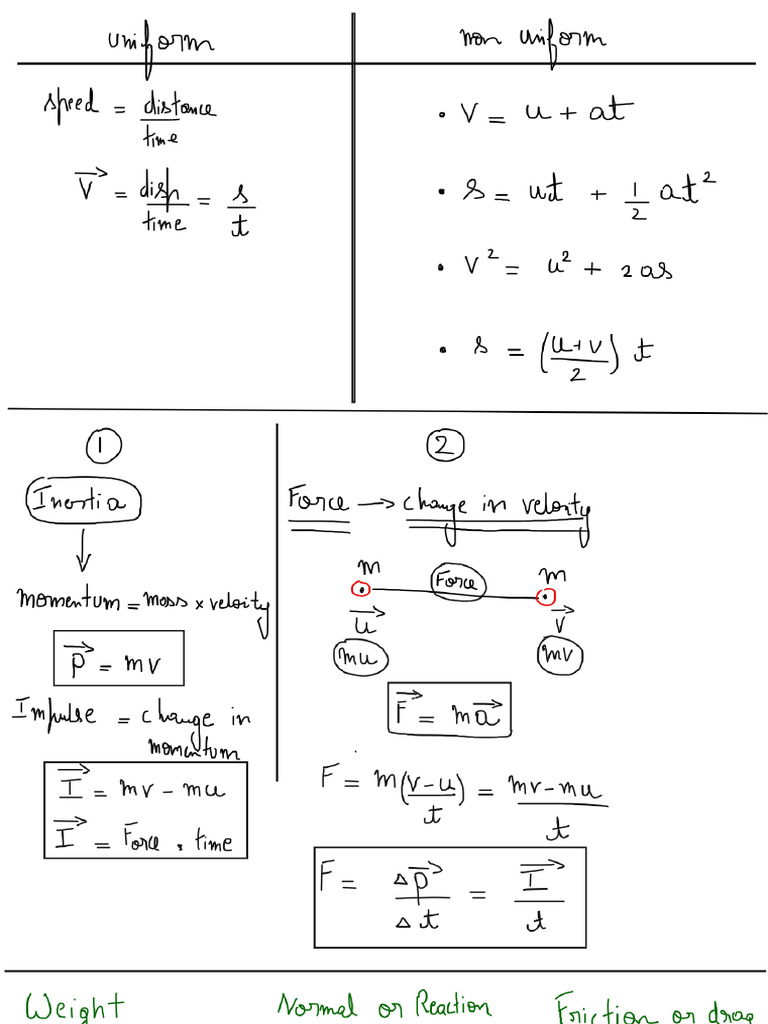 uniform
speed = distance / time
V⃗ = disp / time = s / t
non uniform
• V = u + at
• s = ut + 1/2 at²
• V² = u² + 2as
• s = (u+v / 2) t
①
Inertia
momentum = mass × velocity
P⃗ = mv
Impulse = change in
momentum
I⃗ = mv - mu
I⃗ = Force × time
②
Force → change in velocity
m Force m
u⃗ v⃗
mu mv
F⃗ = ma⃗
F = m (v-u / t) = mv-mu / t
F = Δp⃗ / Δt = I⃗ / t
Weight Normal or Reaction Friction or drag